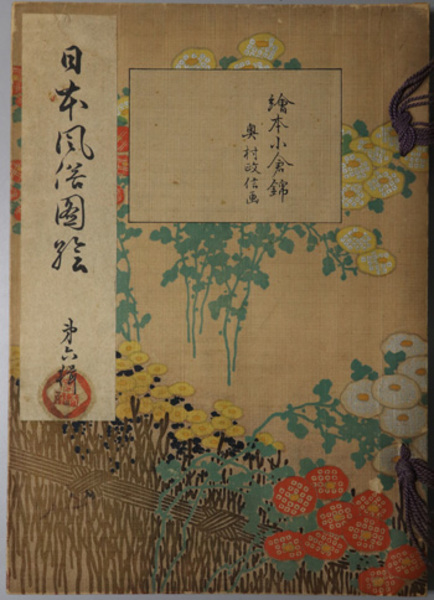 日本風俗圖繪
第六輯
繪本小倉錦
奥村政信画